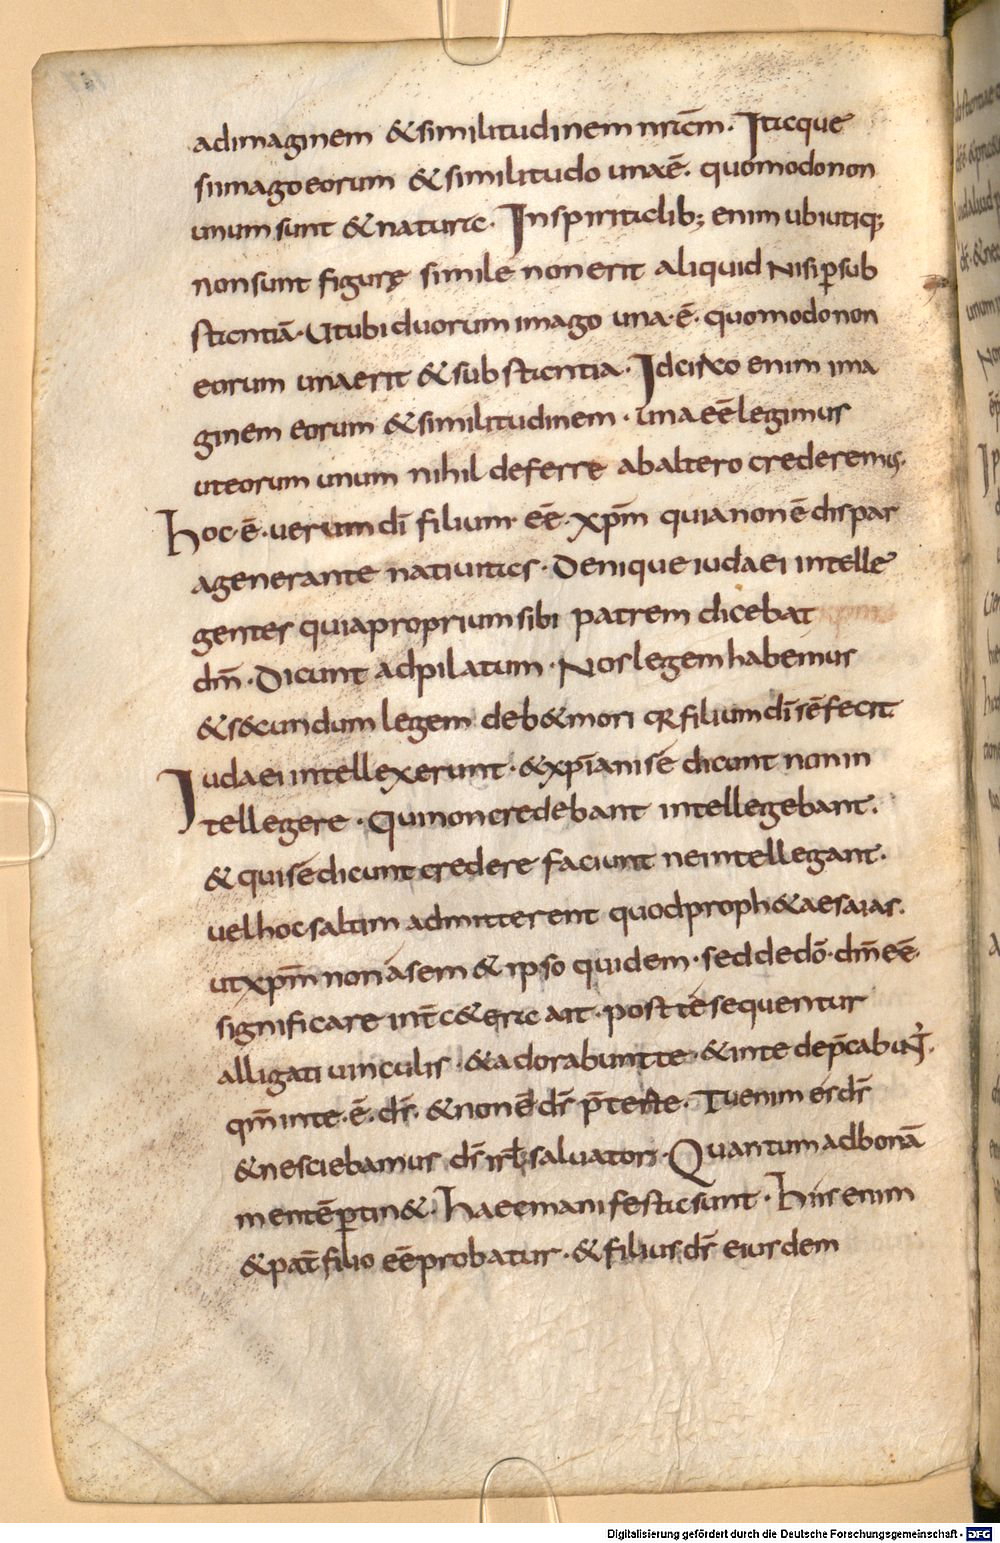 adimaginem &similitudinem nr̄am. Itaque
siimagoeorum &similitudo unaē. quomodonon
unumsunt &natura. Inspiritalib; enim ubiutiq;
nonsunt figurę simile nonerit aliquid Nisip̄sub
stantiā. Utubiduorumimago una.ē. quomodonon
eorum unaerit &substantia. Idcirco enim ima
ginem eorum &similitudinem. unaeē legimus
uteorum unum nihil deferre abaltero crederemus.
hoc.ē.uerumdī filium eē.xp̄m quianonē dispar
agenerante natiuitas. Denique iudaei intelle
gentes quiapropriumsibi patrem dicebat
dm̄. Dicunt adpilatum. Noslegemhabemus
&s&cundum legem deb&mori qr filiumdī sē fecit.
Iudaei intellexerunt. &xp̄iani sē dicunt nonin
tellegere. Quinoncredebant intellegebant.
&quisē dicunt credere faciunt neintellegant.
uelhocsaltim admitterent quodproph&aesaias.
utxp̄m nonasem&ipso quidem. seddedō. dm̄ eē.
significare int̄c&era ait. post tesequentur
alligati uinculis. &adorabuntte. &inte dep̄cabunt.
qm̄ inte.ē.ds̄. &nonē ds̄ p̄terte. Tuenim es ds̄
&nesciebamus ds̄ isrl̄ saluator. Quantumadbonā
mentē p̄tin&. haecmanifestasunt. his enim
&pat̄ filio eē probatur. &filius ds̄ eiusdem
Digitalisierung gefördert durch die Deutsche Forschungsgemeinschaft - DFG